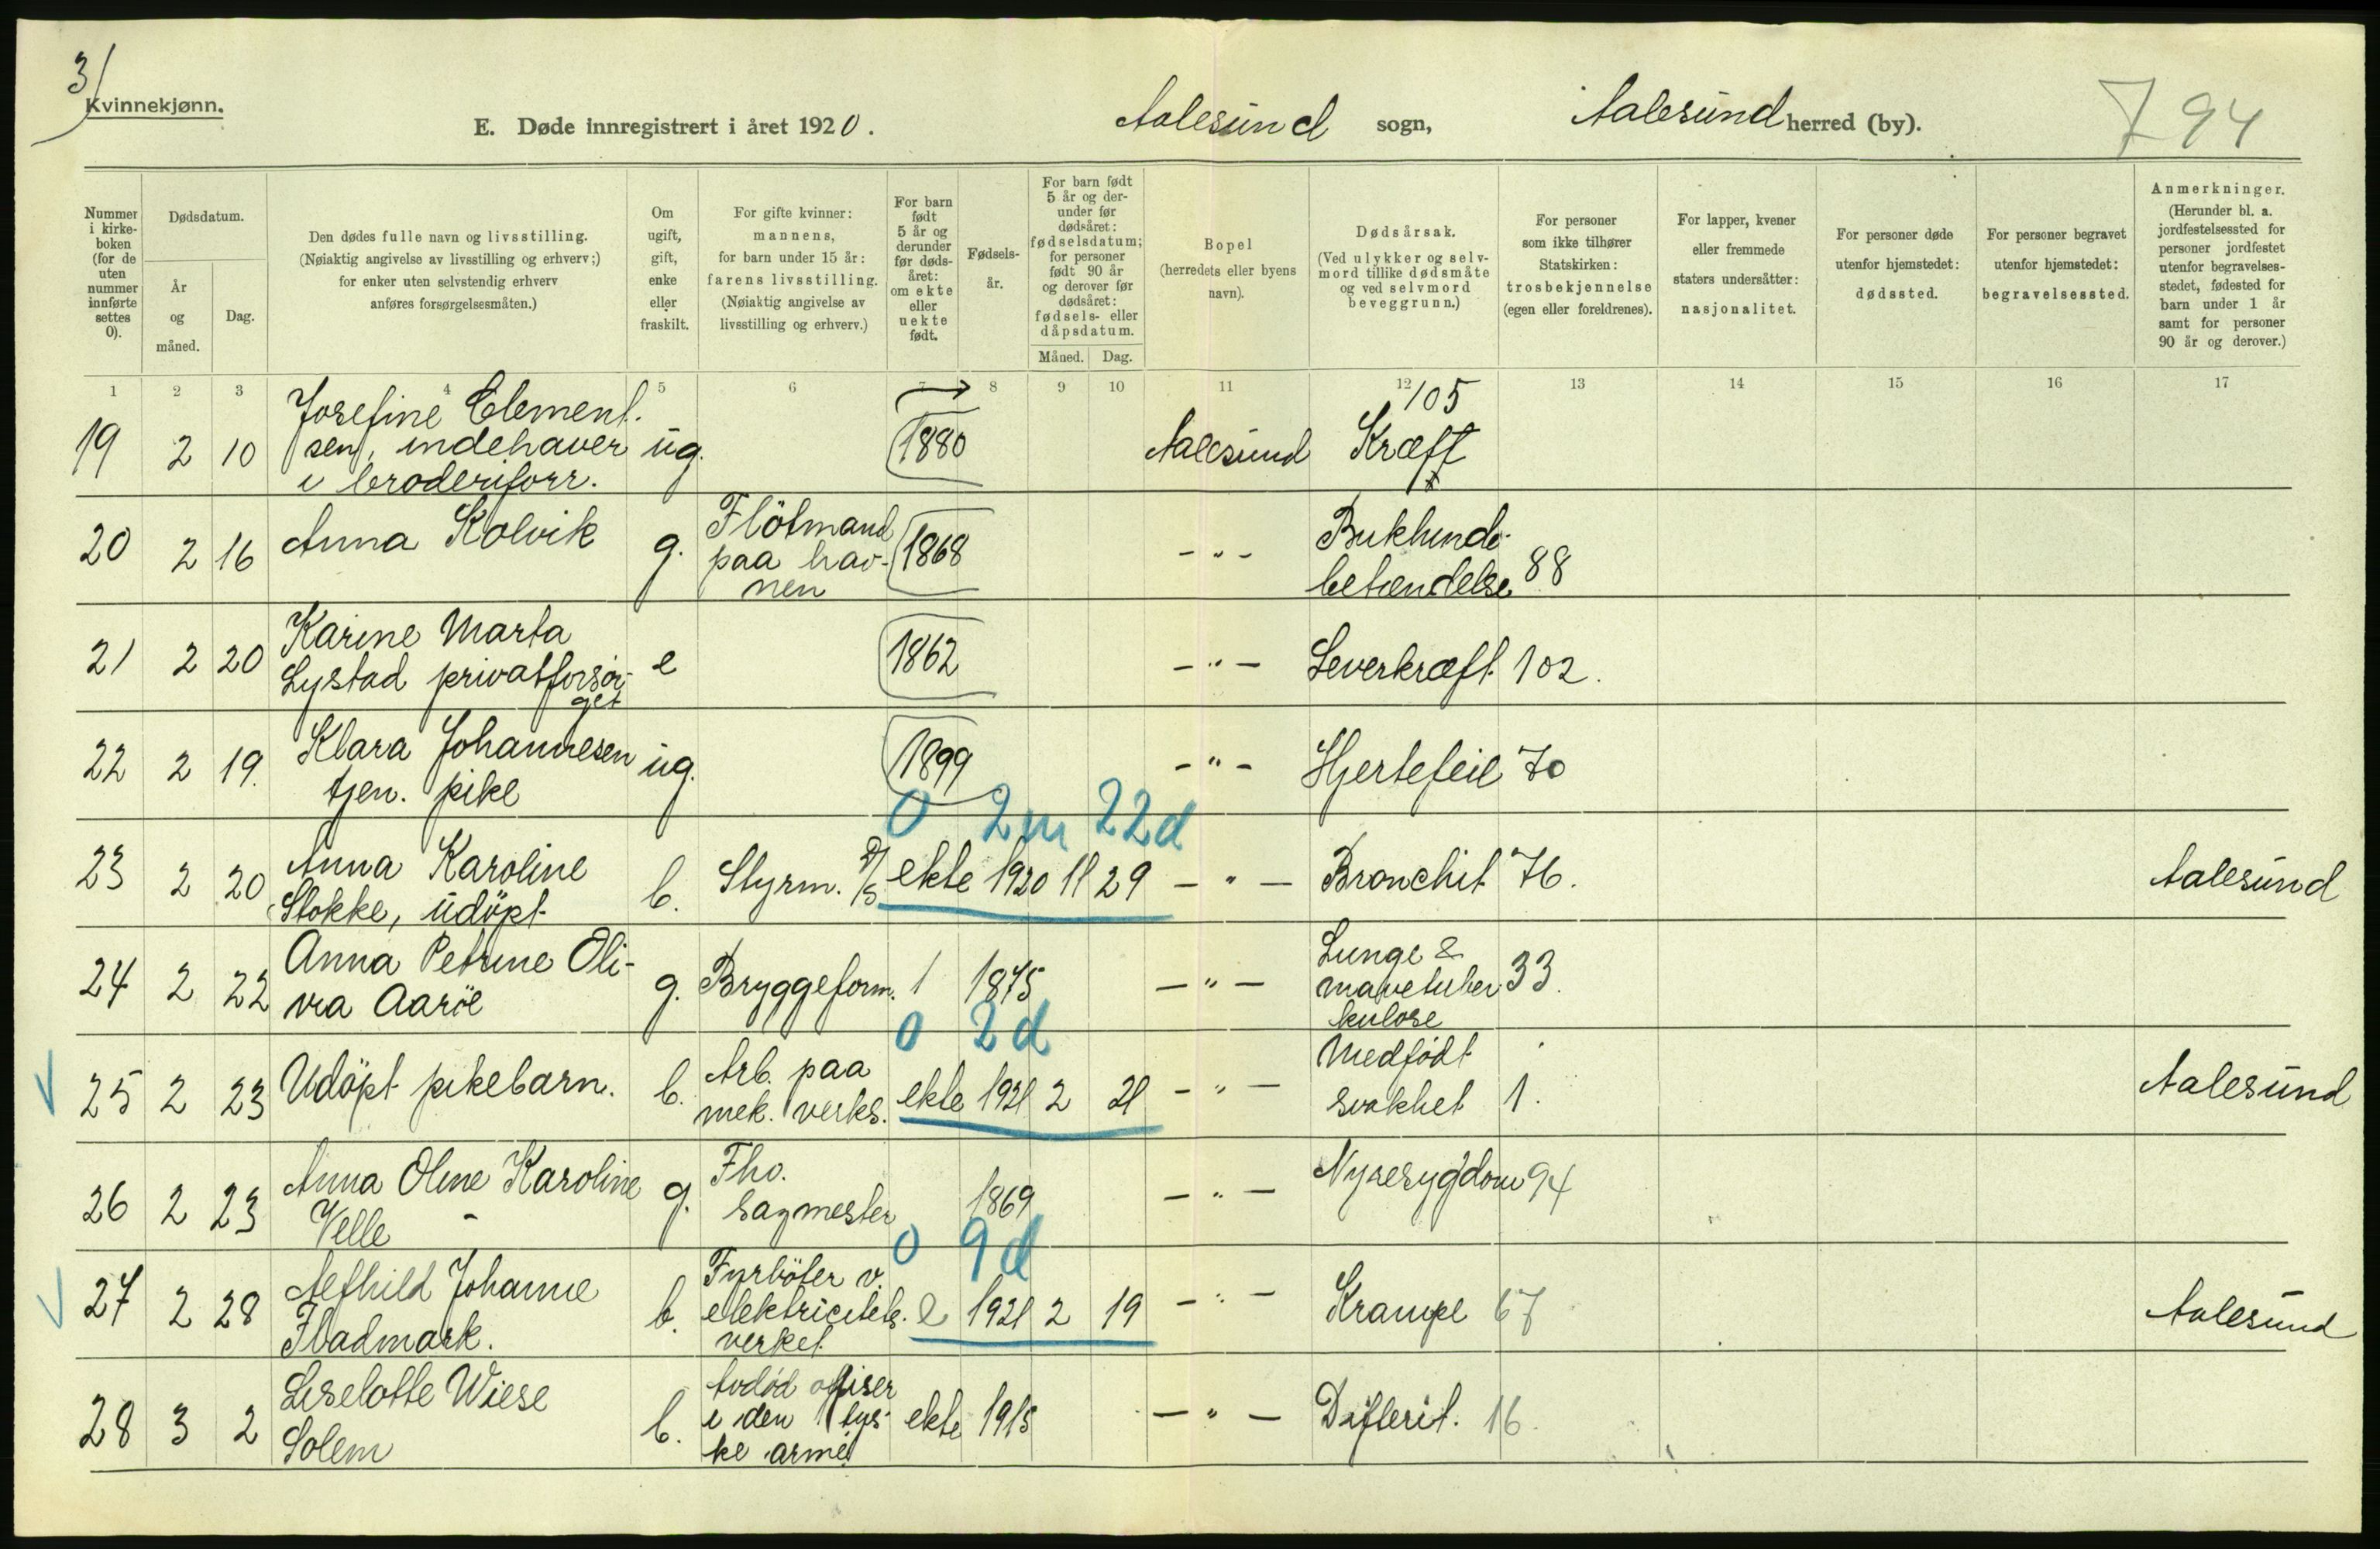 3/
Kvinnekjønn.
E. Døde innregistrert i året 1920. Aalesund sogn, Aalesund herred (by). 794
Nummer i kirke-boken (for de uten nummer innførte settes 0).
Dødsdatum.
År og måned.
Dag.
Den dødes fulle navn og livsstilling.
(Nøiaktig angivelse av livsstilling og erhverv;)
for enker uten selvstendig erhverv
anføres forsørgelsesmåten.)
Om ugift, gift, enke eller fraskilt.
For gifte kvinner:
mannens,
for barn under 15 år:
farens livsstilling.
(Nøiaktig angivelse av
livsstilling og erhverv.)
For barn født 5 år og derunder før døds-året: om ekte eller uekte født.
Fødsels-år.
For barn født 5 år og der-under før dødsåret: fødselsdatum; for personer født 90 år og derover før dødsåret: fødsels- eller dåpsdatum.
Måned. Dag.
Bopel
(herredets eller byens
navn).
Dødsårsak.
(Ved ulykker og selv-
mord tillike dødsmåte
og ved selvmord
beveggrunn.)
For personer
som ikke tilhører
Statskirken:
trosbekjennelse
(egen eller foreldrenes).
For lapper, kvener
eller fremmede
staters undersåtter:
nasjonalitet.
For personer døde
utenfor hjemstedet:
dødssted.
For personer begravet
utenfor hjemstedet:
begravelsessted.
Anmerkninger.
(Herunder bl. a.
jordfestelsessted for
personer jordfestet
utenfor begravelses-
stedet, fødested for
barn under 1 år
samt for personer
90 år og derover.)
1 2 3 4 5 6 7 8 9 10 11 12 13 14 15 16 17
105
19 2 10 Josefine Clement-
sen, indehaver
i broderiforr. ug. 1880 Aalesund Kræft
20 2 16 Anna Kolvik g. Flötmand
paa hav-
nen 1868 - " - Bukhinde-
betændelse 88
21 2 20 Karine Marta
Lystad privatforsör-
get e 1862 - " - Leverkræft 102.
22 2 19. Klara Johannesen
tjen. pike ug. 1899 - " - Hjertefeil 70
0 2m 22d
23 2 20 Anna Karoline
Stokke, udöpt b. Styrm. D/S ekte 1920 11 29 - " - Bronchit 76. Aalesund
24 2 22 Anna Petrine Oli-
via Aaröe g. Bryggeform. 1 1875 - " - Lunge &
mavetuber
kulose 33.
0 2d
25 2 23 Udöpt pikebarn. b. Arb. paa
mek. verks. ekte 1921 2 21 - " - Medfödt
svakhet 1. Aalesund
26 2 23 Anna Oline Karoline
Velle - g. Fho.
sagmester 1869 - " - Nyresygdom 94
0 9d
27 2 28 Alfhild Johanne
Fladmark. b. Fyrböter v.
elektricitets-
verket e 1921 2 19 - " - Krampe 67 Aalesund
28 3 2 Liselotte Wiese
Solem b. Avdöd ofiser
i den tys-
ke armé ekte 1915 - " - Difterit. 16